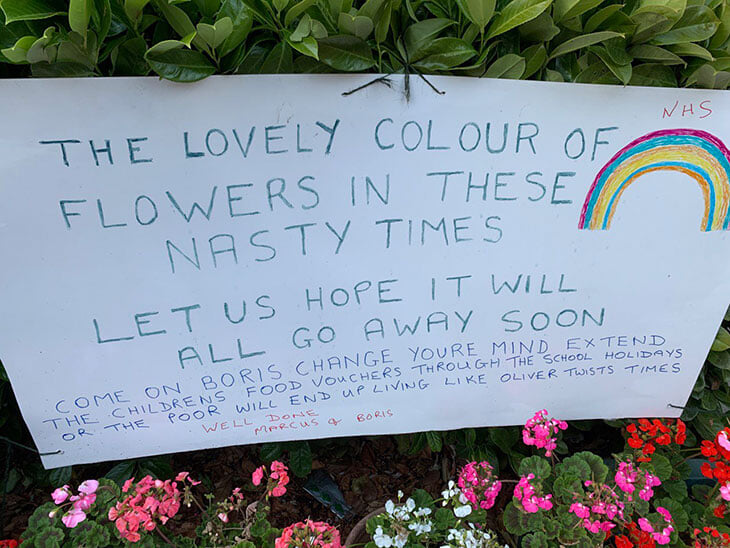 NHS
THE LOVELY COLOUR OF
FLOWERS IN THESE
NASTY TIMES
LET US HOPE IT WILL
ALL GO AWAY SOON
COME ON BORIS CHANGE YOURE MIND EXTEND
THE CHILDRENS FOOD VOUCHERS THROUGH THE SCHOOL HOLIDAYS
OR THE POOR WILL END UP LIVING LIKE OLIVER TWISTS TIMES
WELL DONE
MARCUS & BORIS